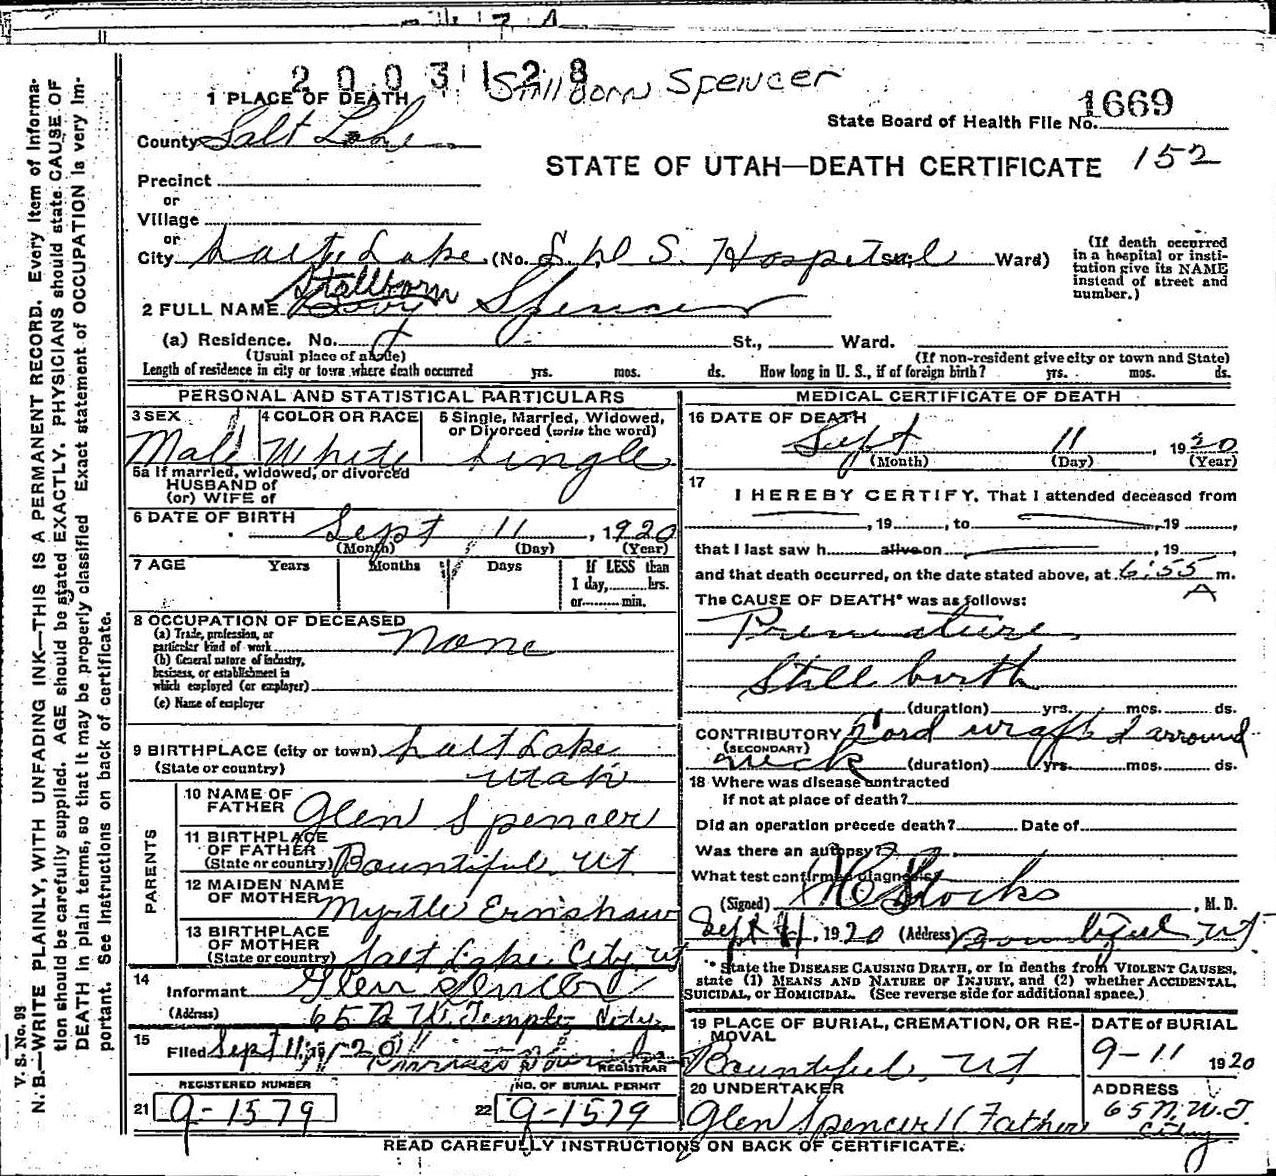 2003128 Stillborn Spencer
1 PLACE OF DEATH
State Board of Health File No. 1669
County Salt Lake
STATE OF UTAH—DEATH CERTIFICATE 152
Precinct
or
Village
or
City Salt Lake (No. L. D. S. Hospital Ward)
(If death occurred
in a hospital or insti-
tution give its NAME
instead of street and
number.)
Stillborn
2 FULL NAME Boy Spencer
(a) Residence. No. St., Ward.
(Usual place of abode) (If non-resident give city or town and State)
Length of residence in city or town where death occurred yrs. mos. ds. How long in U. S., if of foreign birth? yrs. mos. ds.
PERSONAL AND STATISTICAL PARTICULARS
3 SEX 4 COLOR OR RACE 5 Single, Married, Widowed,
or Divorced (write the word)
Male White Single
5a If married, widowed, or divorced
HUSBAND of
(or) WIFE of
6 DATE OF BIRTH
Sept 11, 1920
(Month) (Day) (Year)
7 AGE Years Months Days If LESS than
1 day, hrs.
or min.
8 OCCUPATION OF DECEASED
(a) Trade, profession, or
particular kind of work none
(b) General nature of industry,
business, or establishment in
which employed (or employer)
(c) Name of employer
9 BIRTHPLACE (city or town) Salt Lake
(State or country) Utah
PARENTS
10 NAME OF
FATHER Glen Spencer
11 BIRTHPLACE
OF FATHER
(State or country) Bountiful, Ut
12 MAIDEN NAME
OF MOTHER Myrtle Ernshaw
13 BIRTHPLACE
OF MOTHER
(State or country) Salt Lake City, Ut
14 Informant Glen Spencer
(Address) 65 N W. Temple City
15 Filed Sept 11, 1920 REGISTRAR
REGISTERED NUMBER NO. OF BURIAL PERMIT
21 9-1579 22 9-1579
MEDICAL CERTIFICATE OF DEATH
16 DATE OF DEATH
Sept 11, 1920
(Month) (Day) (Year)
17
I HEREBY CERTIFY, That I attended deceased from
, 19 , to , 19 ,
that I last saw h alive on , 19 ,
and that death occurred, on the date stated above, at 6:55 m.
A
The CAUSE OF DEATH* was as follows:
Premature
Still birth
(duration) yrs. mos. ds.
CONTRIBUTORY Cord wrapt 2 arround
(SECONDARY)
neck (duration) yrs. mos. ds.
18 Where was disease contracted
if not at place of death?
Did an operation precede death? Date of
Was there an autopsy?
What test confirmed diagnosis?
(Signed) Stocks, M. D.
Sept 11, 1920 (Address) Bountiful, Ut.
* State the DISEASE CAUSING DEATH, or in deaths from VIOLENT CAUSES,
state (1) MEANS AND NATURE OF INJURY, and (2) whether ACCIDENTAL,
SUICIDAL, or HOMICIDAL. (See reverse side for additional space.)
19 PLACE OF BURIAL, CREMATION, OR RE-
MOVAL
Bountiful, Ut
DATE of BURIAL
9-11 1920
20 UNDERTAKER
Glen Spencer (Father)
ADDRESS
65 N. W. T.
City
READ CAREFULLY INSTRUCTIONS ON BACK OF CERTIFICATE.
V. S. No. 93
N. B.—WRITE PLAINLY, WITH UNFADING INK—THIS IS A PERMANENT RECORD. Every item of informa-
tion should be carefully supplied. AGE should be stated EXACTLY. PHYSICIANS should state CAUSE OF
DEATH in plain terms, so that it may be properly classified Exact statement of OCCUPATION is very im-
portant. See instructions on back of certificate.